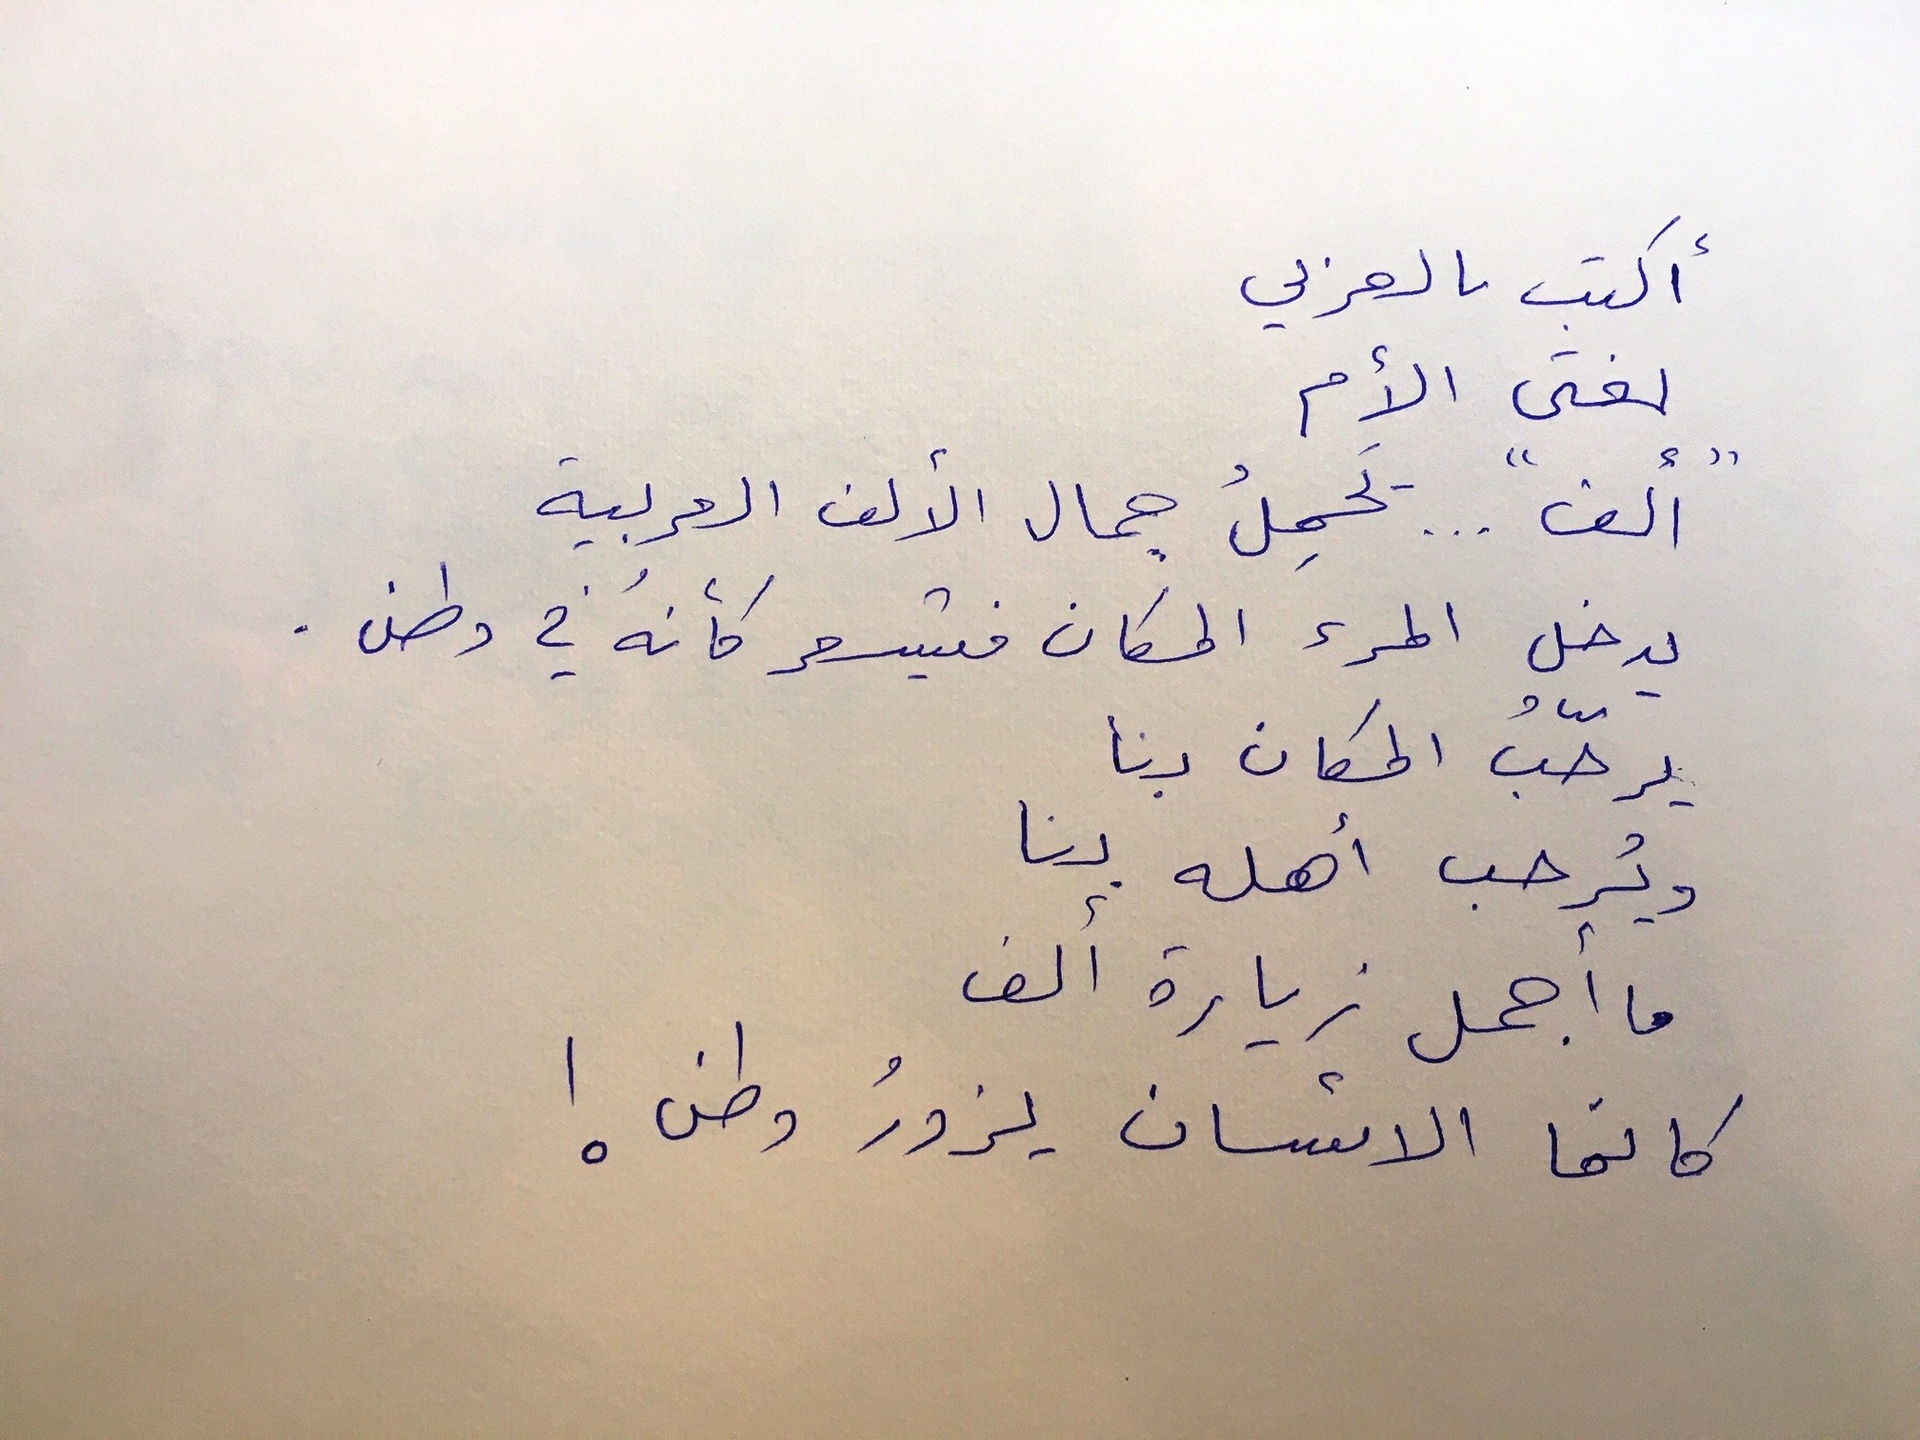 أكتب بالعربي
لغتي الأم
"ألف"... تَحمِلُ جمال الألف العربية
يدخل المرء المكان فيشعر كأنهُ في وطن .
يرحّبُ المكان بنا
ويُرحب أهله بنا
ما أجمل زيارة ألف
كانما الانسان يزورُ وطن !